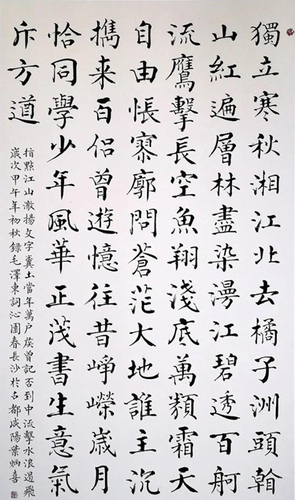 獨立寒秋湘江北去橘子洲頭
山紅遍層林盡染漫江碧透百舸
流鷹擊長空魚翔淺底萬類霜天
自由悵寥廓問蒼茫大地誰主沉
攜来百侶曾遊憶往昔崢嶸歲月
恰同學少年風華正茂書生意氣
斥方遒
指點江山激揚文字糞土當年萬户侯曾記否到中流擊水浪遏飛
歲次甲午年初秋録毛澤東詞沁園春長沙於古都咸陽葉炳喜